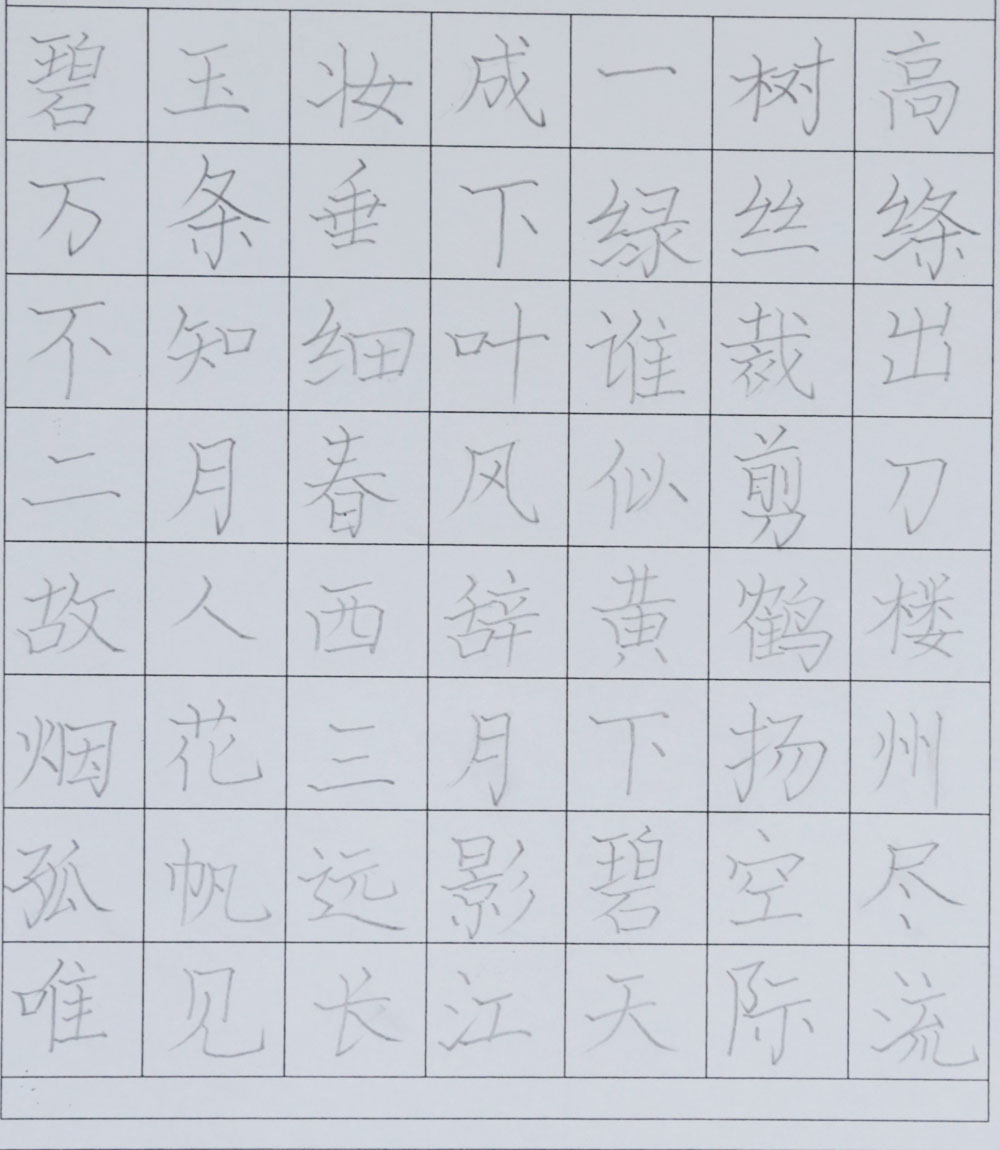 碧玉妆成一树高
万条垂下绿丝绦
不知细叶谁裁出
二月春风似剪刀
故人西辞黄鹤楼
烟花三月下扬州
孤帆远影碧空尽
唯见长江天际流